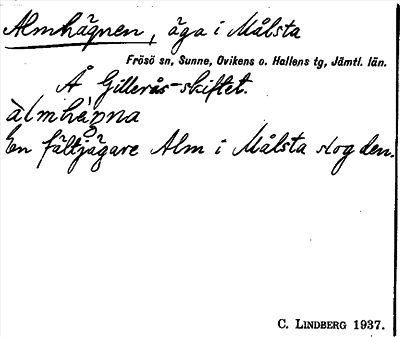 Almhägnen, äga i Målsta
Frösö sn, Sunne, Ovikens o. Hallens tg, Jämtl. län.
Å Gillerås-skiftet.
àlmhæ̀ŋna
En fältjägare Alm i Målsta slog den.
C. LINDBERG 1937.